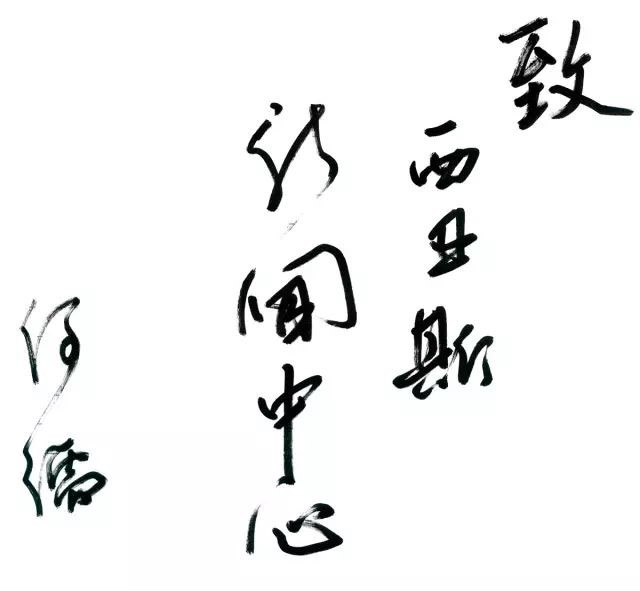 致
西丑斯
新闻中心
何儒